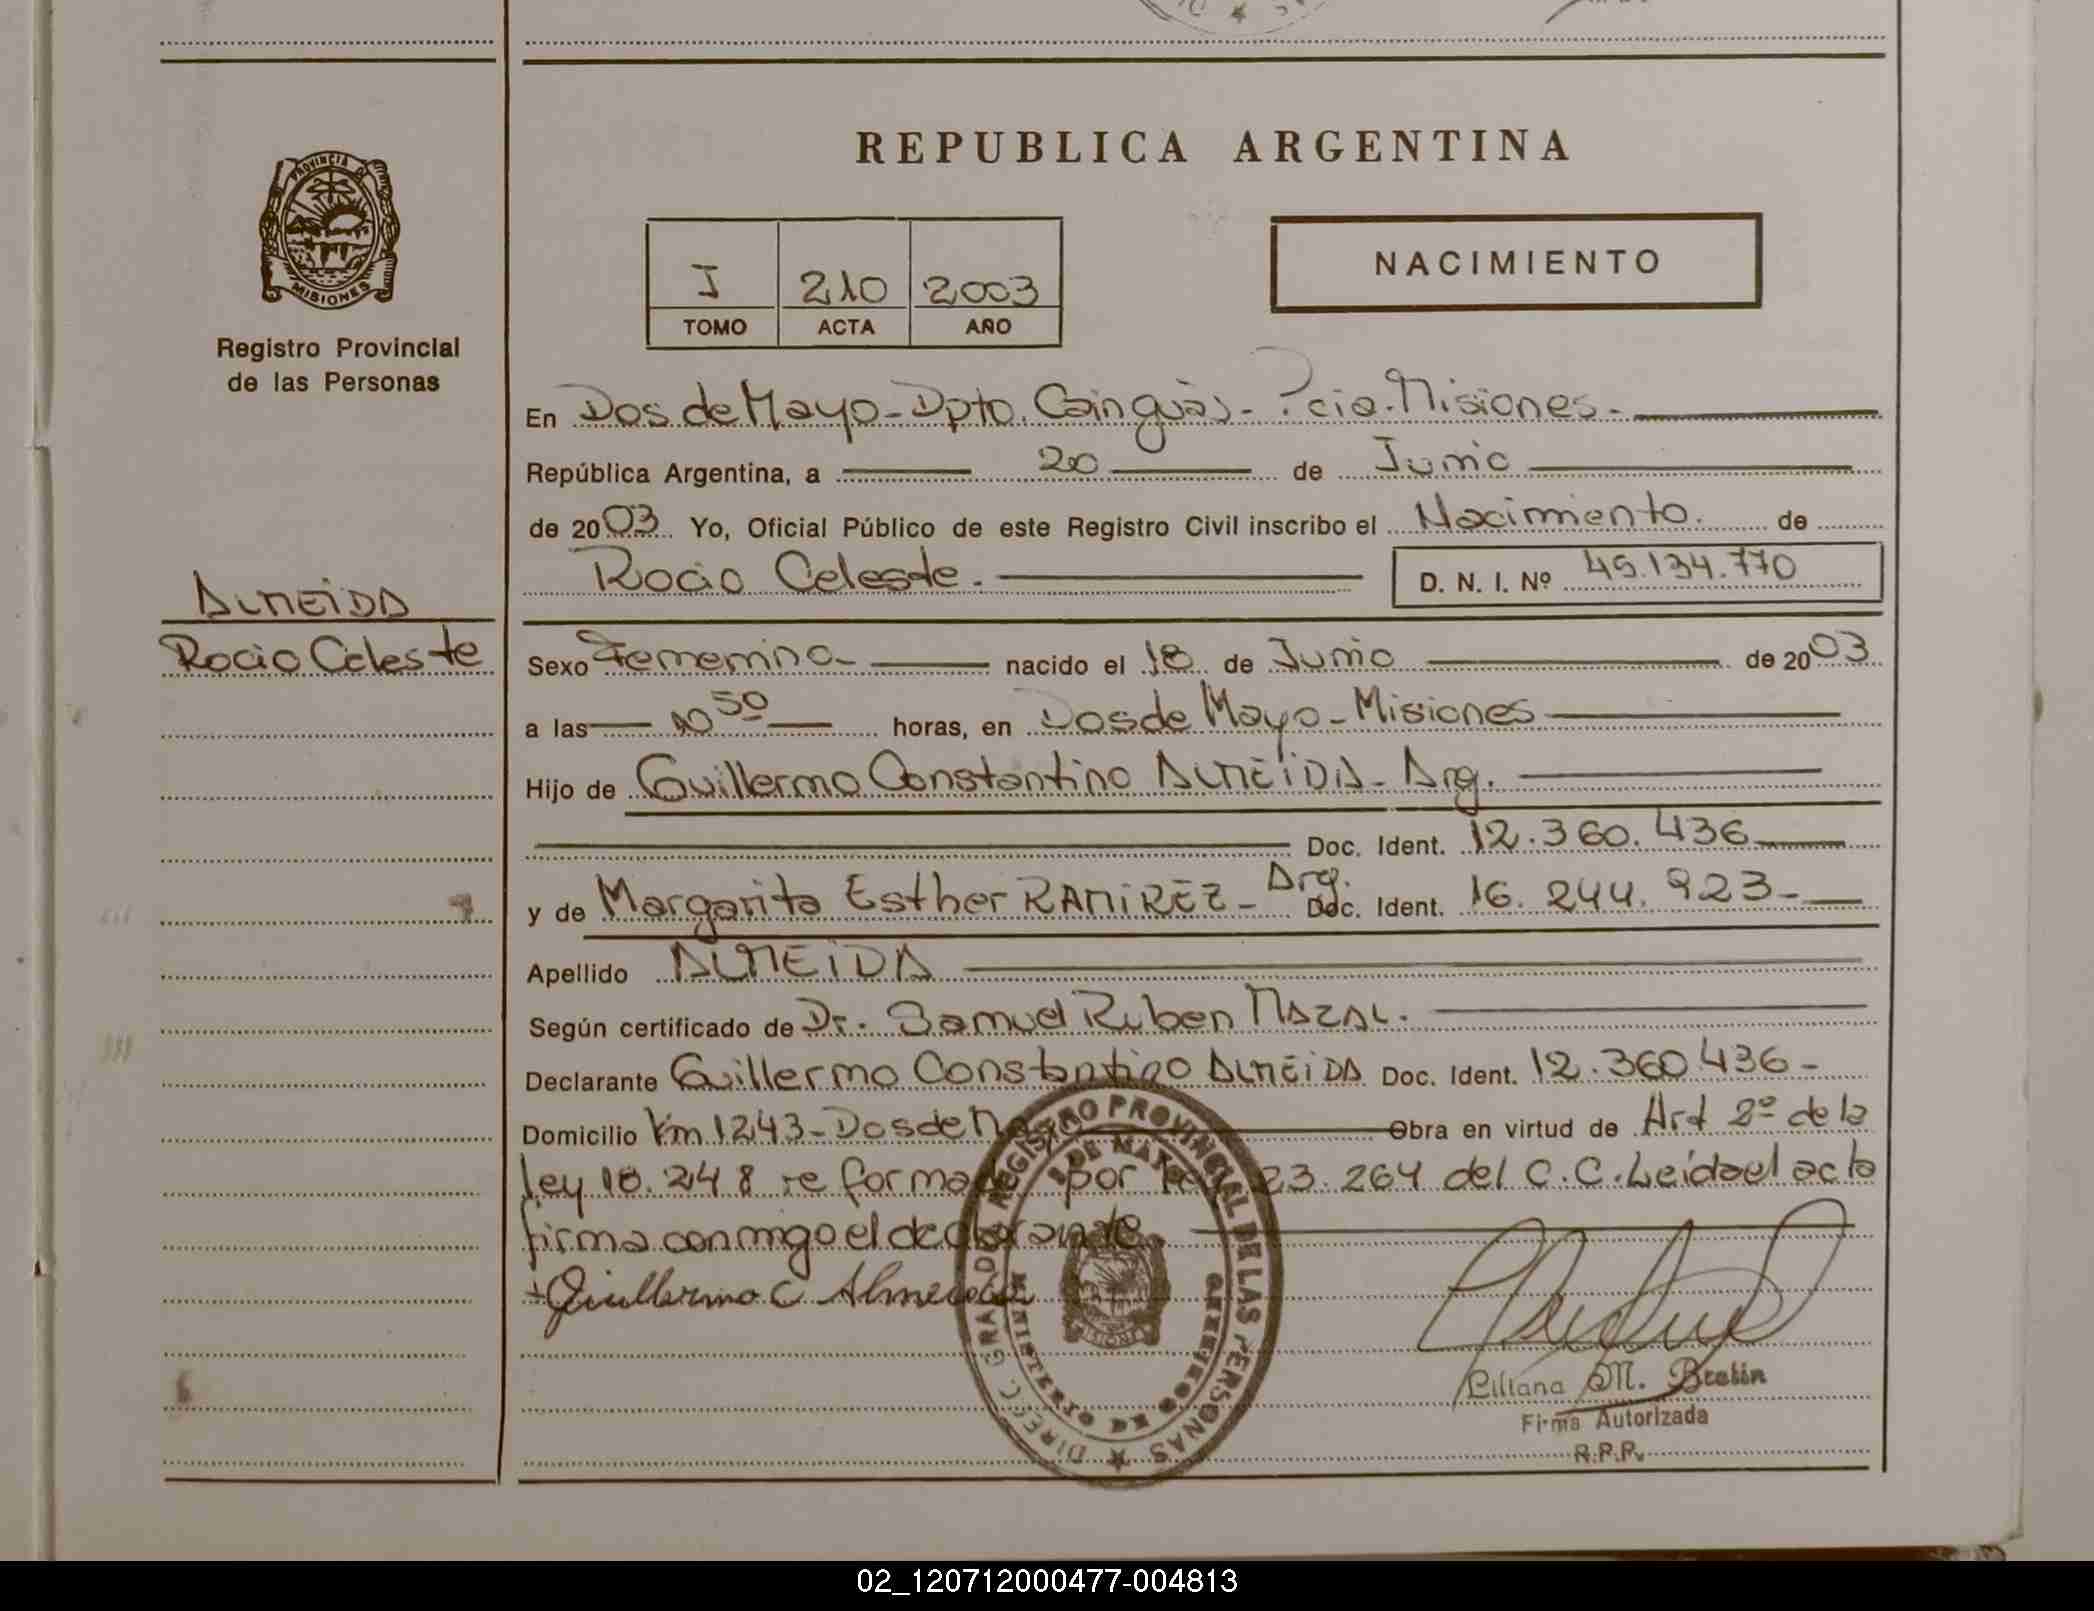 REPUBLICA ARGENTINA
PROVINCIA DE
MISIONES
Registro Provincial
de las Personas
I 210 2003
TOMO ACTA AÑO
NACIMIENTO
En Dos de Mayo - Dpto. Cainguàs - Pcia. Misiones.
República Argentina, a 20 de Junio
de 2003 Yo, Oficial Público de este Registro Civil inscribo el Nacimiento. de
Rocio Celeste. D. N. I. Nº 45.134.770
ALMEIDA
Rocio Celeste
Sexo Femenino - nacido el 18 de Junio de 2003
a las 10 50 horas, en Dos de Mayo - Misiones
Hijo de Guillermo Constantino ALMEIDA - Arg.
Doc. Ident. 12.360.436
y de Margarita Esther RAMIREZ - Arg. Doc. Ident. 16.244.923 -
Apellido ALMEIDA
Según certificado de Dr. Samuel Ruben MAZAL.
Declarante Guillermo Constantino ALMEIDA Doc. Ident. 12.360.436 -
Domicilio Km 1243 - Dos de Obra en virtud de Art 2º de la
ley 18.248 re forma por 23.264 del C.C. Leida el acta
firma conmigo el declarante.
Guillermo C Almeida
DIREC. GRAL. DEL REGISTRO PROVINCIAL DE LAS PERSONAS
2 DE MAYO
MINISTERIO DE GOBIERNO
Liliana M. Bretin
Firma Autorizada
R.P.P.
02_120712000477-004813